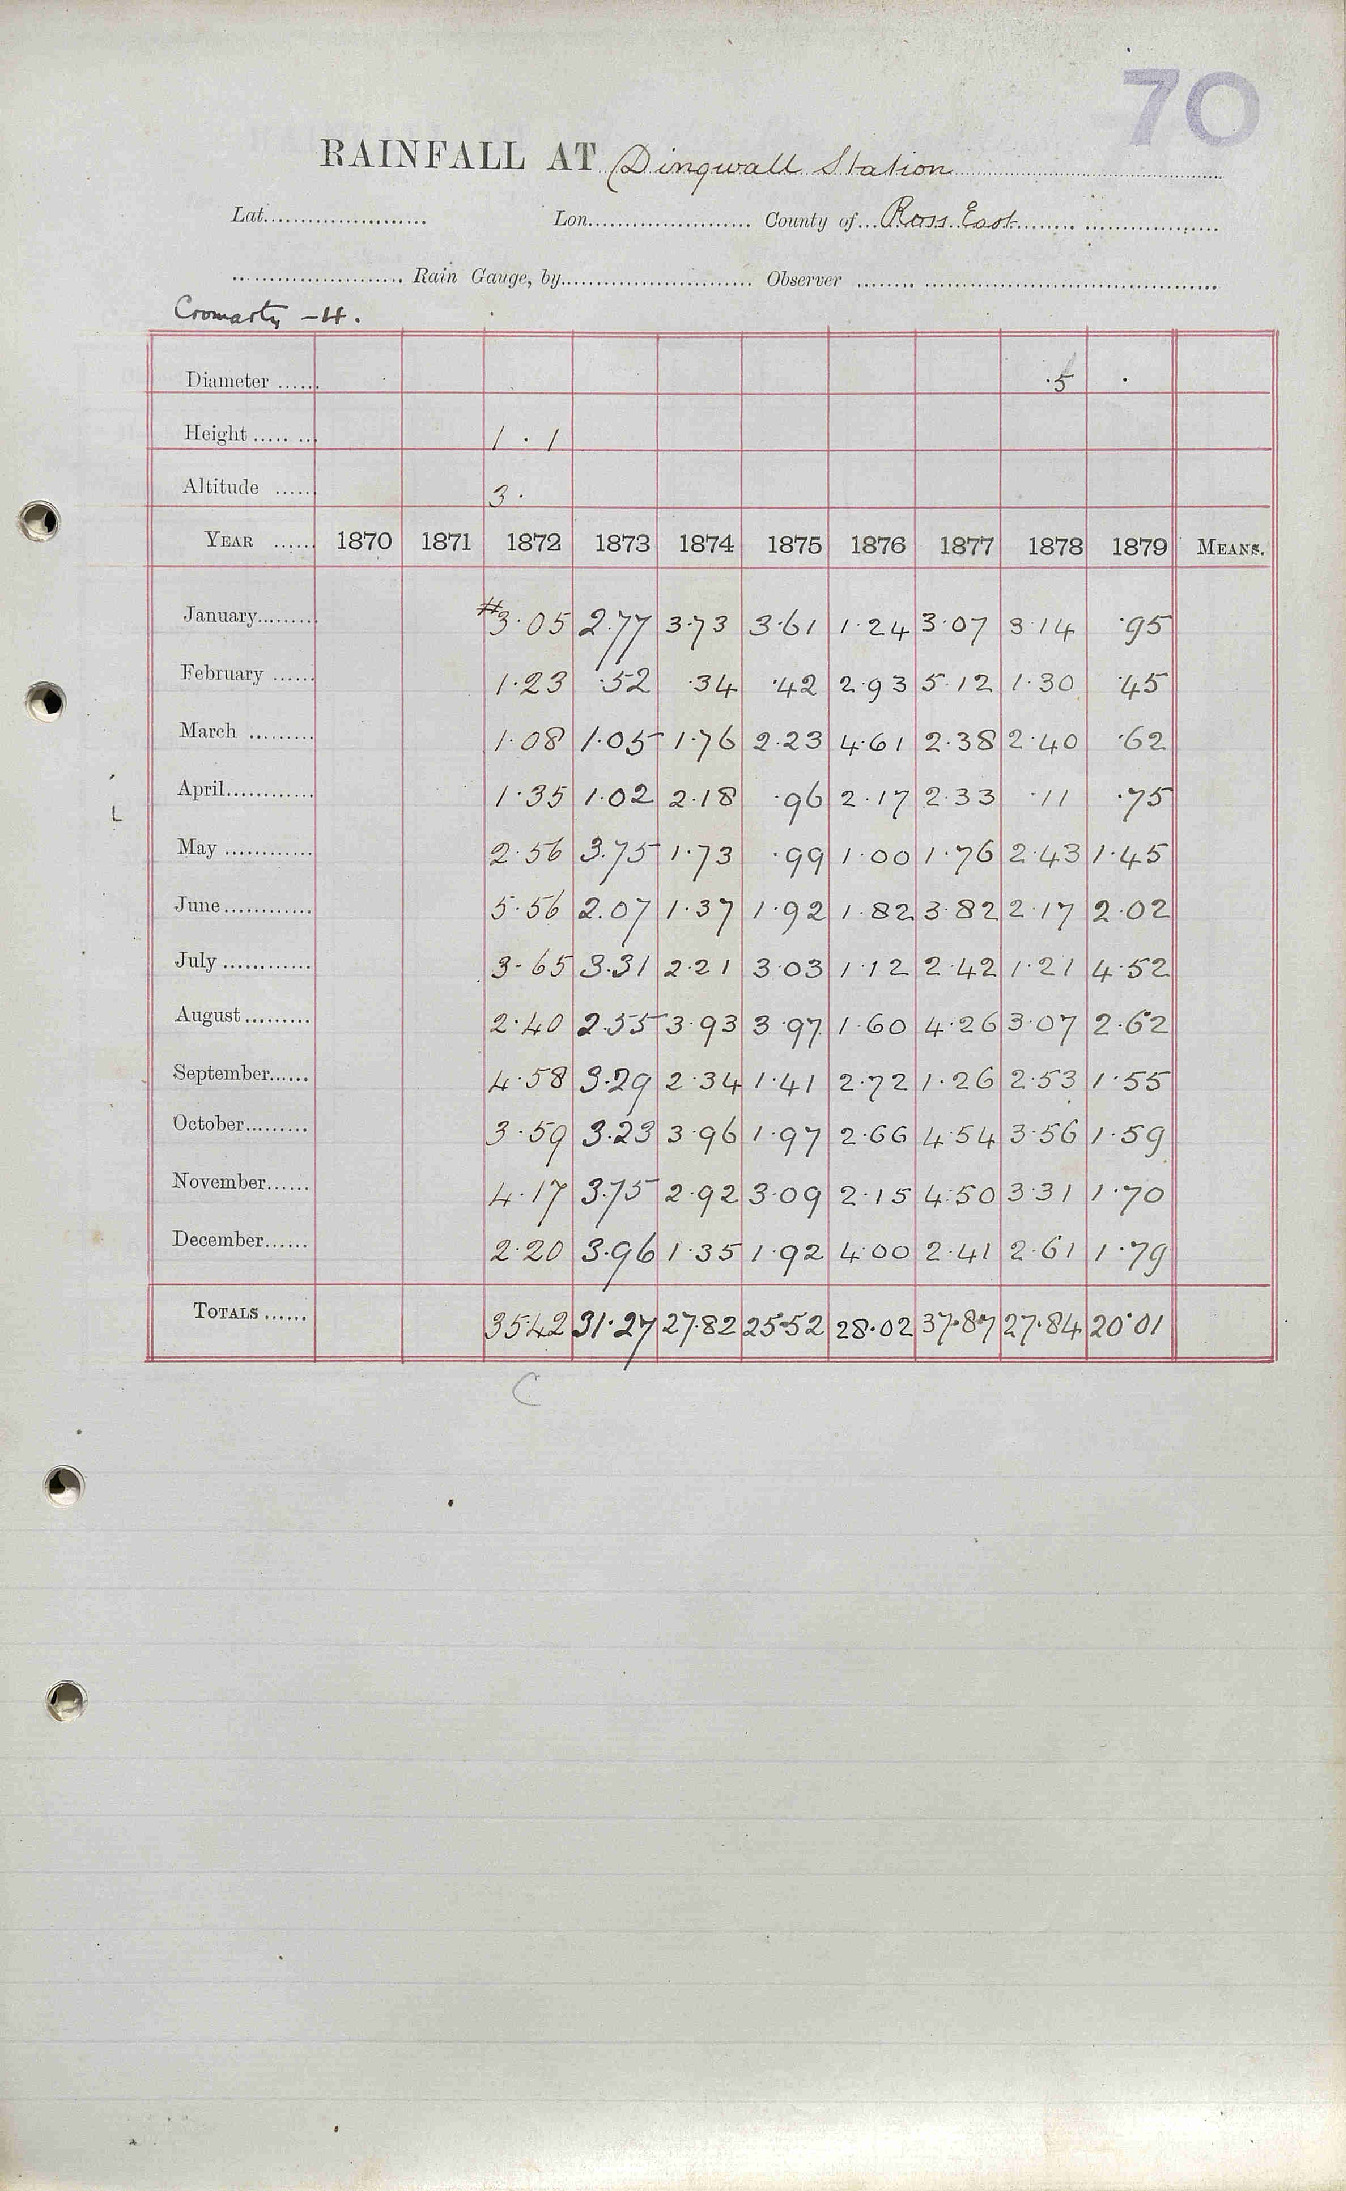 70
RAINFALL AT Dingwall Station
Lat. Lon. County of Ross East
Rain Gauge, by Observer
Cromarty - H.
Diameter ...... ·5 ·
Height ........ 1 · 1
Altitude ...... 3 ·
YEAR ...... 1870 1871 1872 1873 1874 1875 1876 1877 1878 1879 MEANS.
January 3·05 2.77 3·73 3·61 1·24 3·07 3·14 ·95
February 1·23 ·52 ·34 ·42 2·93 5·12 1·30 ·45
March 1·08 1·05 1·76 2·23 4·61 2·38 2·40 ·62
April 1·35 1·02 2·18 ·96 2·17 2·33 ·11 ·75
May 2·56 3.75 1·73 ·99 1·00 1·76 2·43 1·45
June 5·56 2.07 1·37 1·92 1·82 3·82 2·17 2·02
July 3·65 3.31 2·21 3·03 1·12 2·42 1·21 4·52
August 2·40 2.55 3·93 3·97 1·60 4·26 3·07 2·62
September 4·58 3·29 2·34 1·41 2·72 1·26 2·53 1·55
October 3·59 3.23 3·96 1·97 2·66 4·54 3·56 1·59
November 4·17 3.75 2·92 3·09 2·15 4·50 3·31 1·70
December 2·20 3·96 1·35 1·92 4·00 2·41 2·61 1·79
TOTALS ...... 35·42 31·27 27·82 25·52 28·02 37·87 27·84 20·01
C